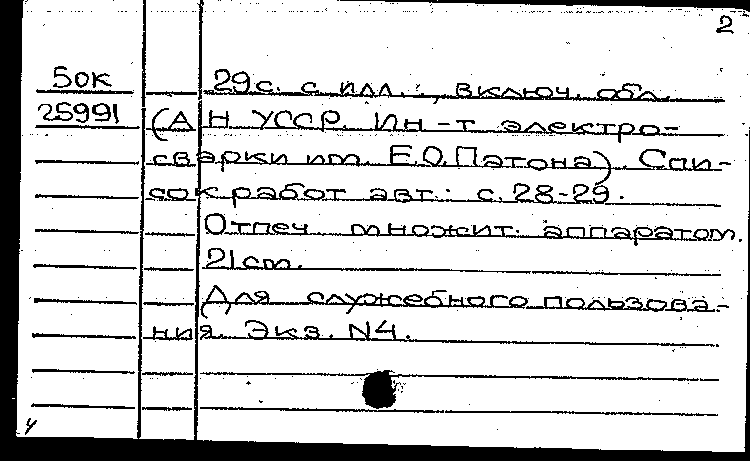 2
50к 29с. с илл., включ. обл.
25991 (АН УССР. Ин-т электро-
сварки им. Е.О.Патона). Спи-
сок работ авт.: с.28-29.
Отпеч множит. аппаратом.
21cm.
Для служебного пользова-
ния. Экз. N4.